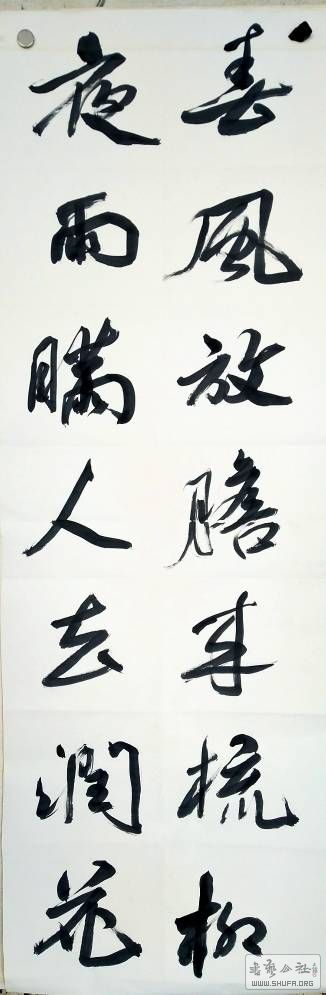 春風放膽来梳柳
夜雨瞞人去潤花
書藝公社
WWW.SHUFA.ORG